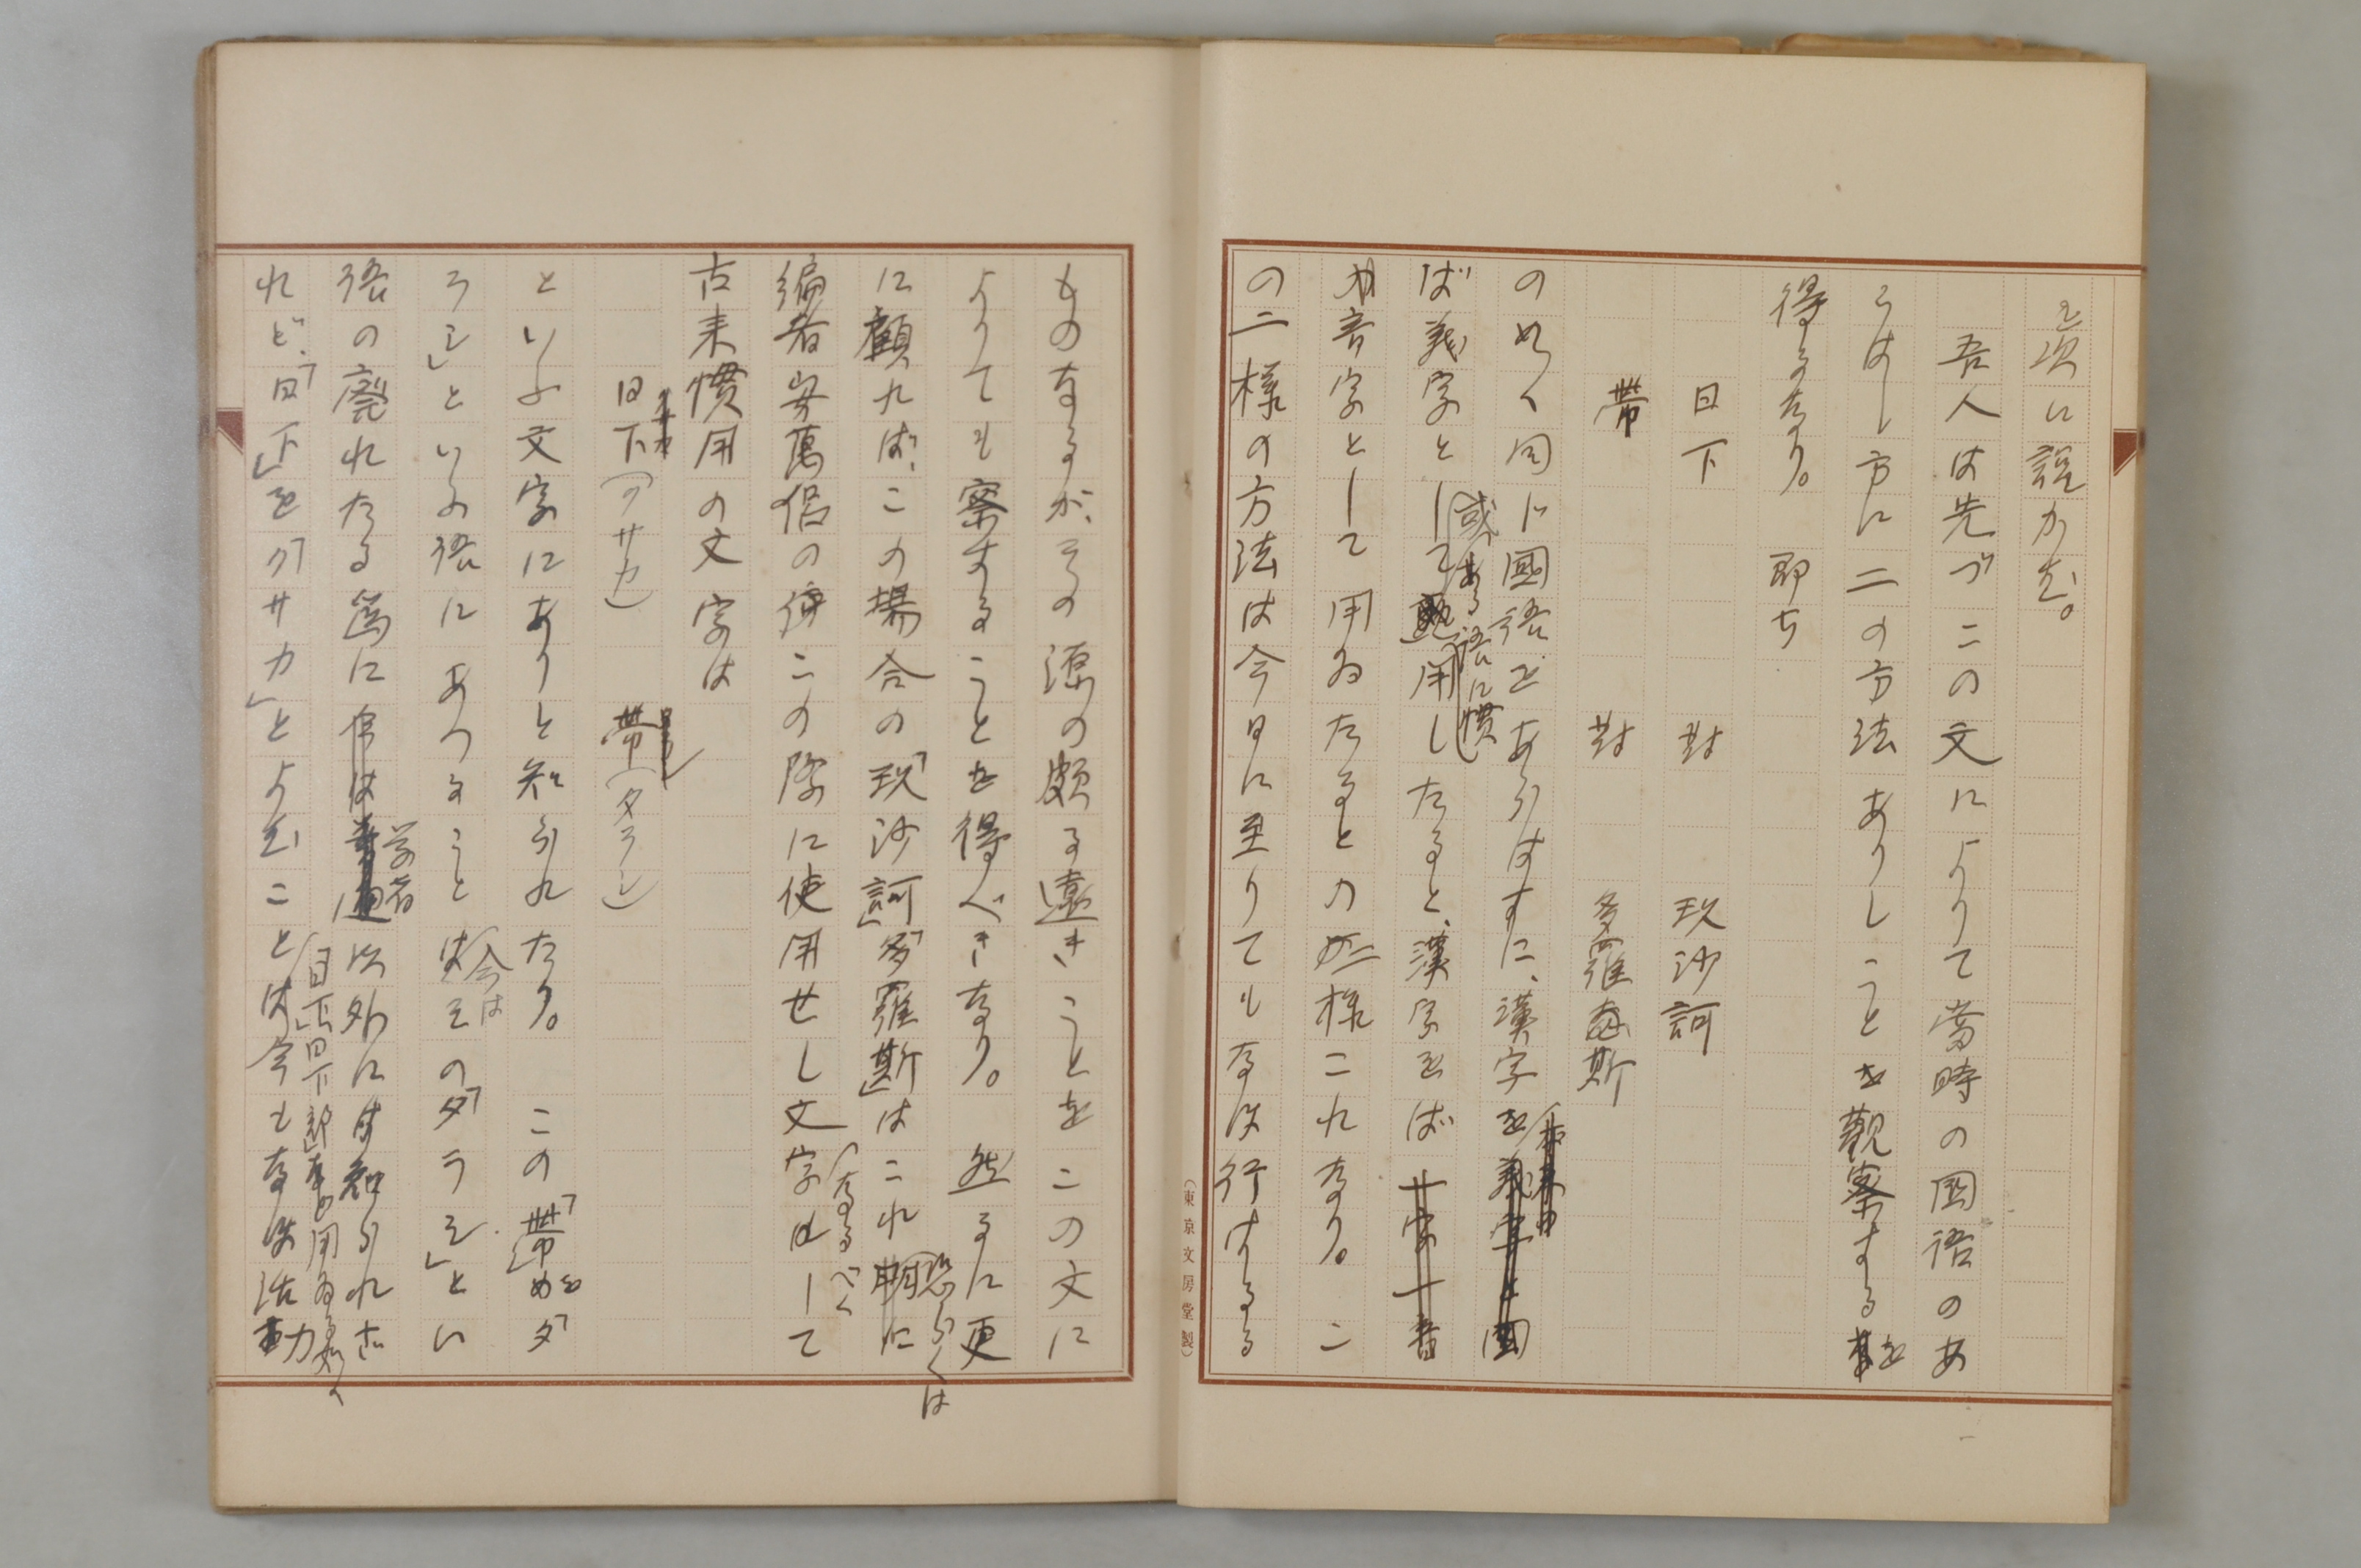 を次に説かむ。
吾人は先づこの文によりて當時の國語のあ
らはし方に二の方法ありしことを觀察するを
得るなり。 即ち
日下 對 玖沙訶
帶 對 多羅斯
の如く同じ國語をあらはすに、漢字を
或ある語に慣
ば義字として用したると、漢字をば
音字として用ゐたるとの二様これなり。こ
の二様の方法は今日に至りてもなほ行はるる
(東京文房堂製)
ものなるが、その源の頗る遠きことをこの文に
よりても察することを得べきなり。然るに更
恐らくは
に顧れば、この場合の「玖沙訶」「多羅斯」はこれ
なるべく
編者安萬侶の この際に使用せし文字にして
古来慣用の文字は
日下(クサカ) 帶(タラシ)
といふ文字にありと知られたり。 この「帶」を「タ
ラシ」といふ語にあつること
今は
その「タラシ」とい
語の廢れたる爲に
学者
以外には知られざ
「日下」「日下部」など用ゐる如く
れど、「日下」を「クサカ」とよむことは今もなほ活動